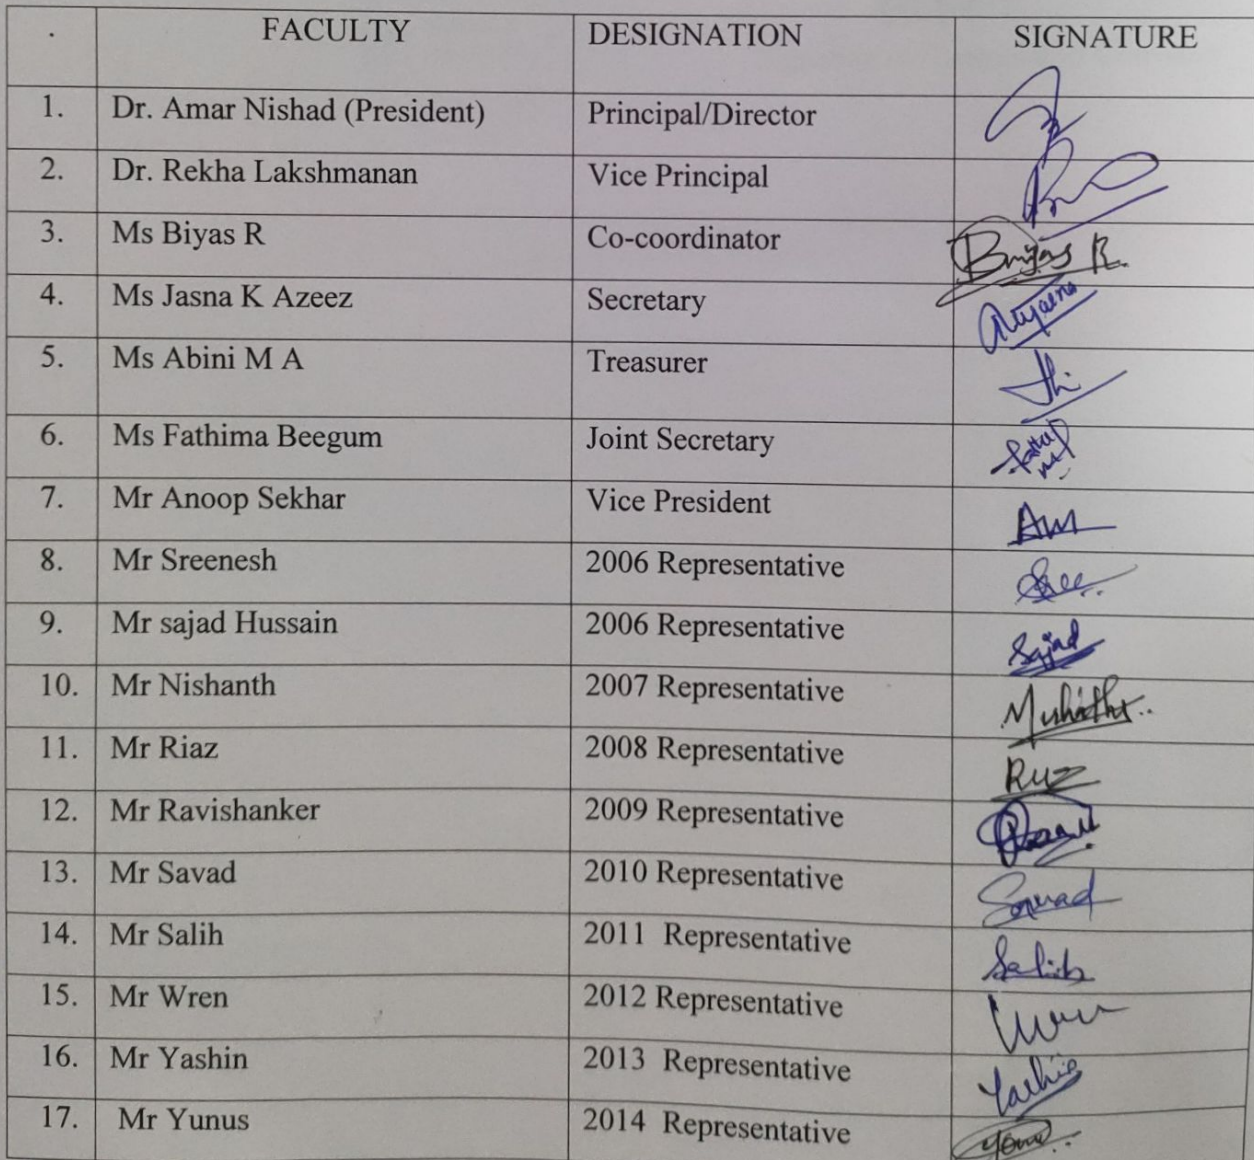 . FACULTY DESIGNATION SIGNATURE
1. Dr. Amar Nishad (President) Principal/Director
2. Dr. Rekha Lakshmanan Vice Principal
3. Ms Biyas R Co-coordinator Biyas R.
4. Ms Jasna K Azeez Secretary
5. Ms Abini M A Treasurer
6. Ms Fathima Beegum Joint Secretary
7. Mr Anoop Sekhar Vice President
8. Mr Sreenesh 2006 Representative Sree
9. Mr sajad Hussain 2006 Representative Sajad
10. Mr Nishanth 2007 Representative
11. Mr Riaz 2008 Representative
12. Mr Ravishanker 2009 Representative
13. Mr Savad 2010 Representative Savad
14. Mr Salih 2011 Representative Salih
15. Mr Wren 2012 Representative Wren
16. Mr Yashin 2013 Representative Yashin
17. Mr Yunus 2014 Representative